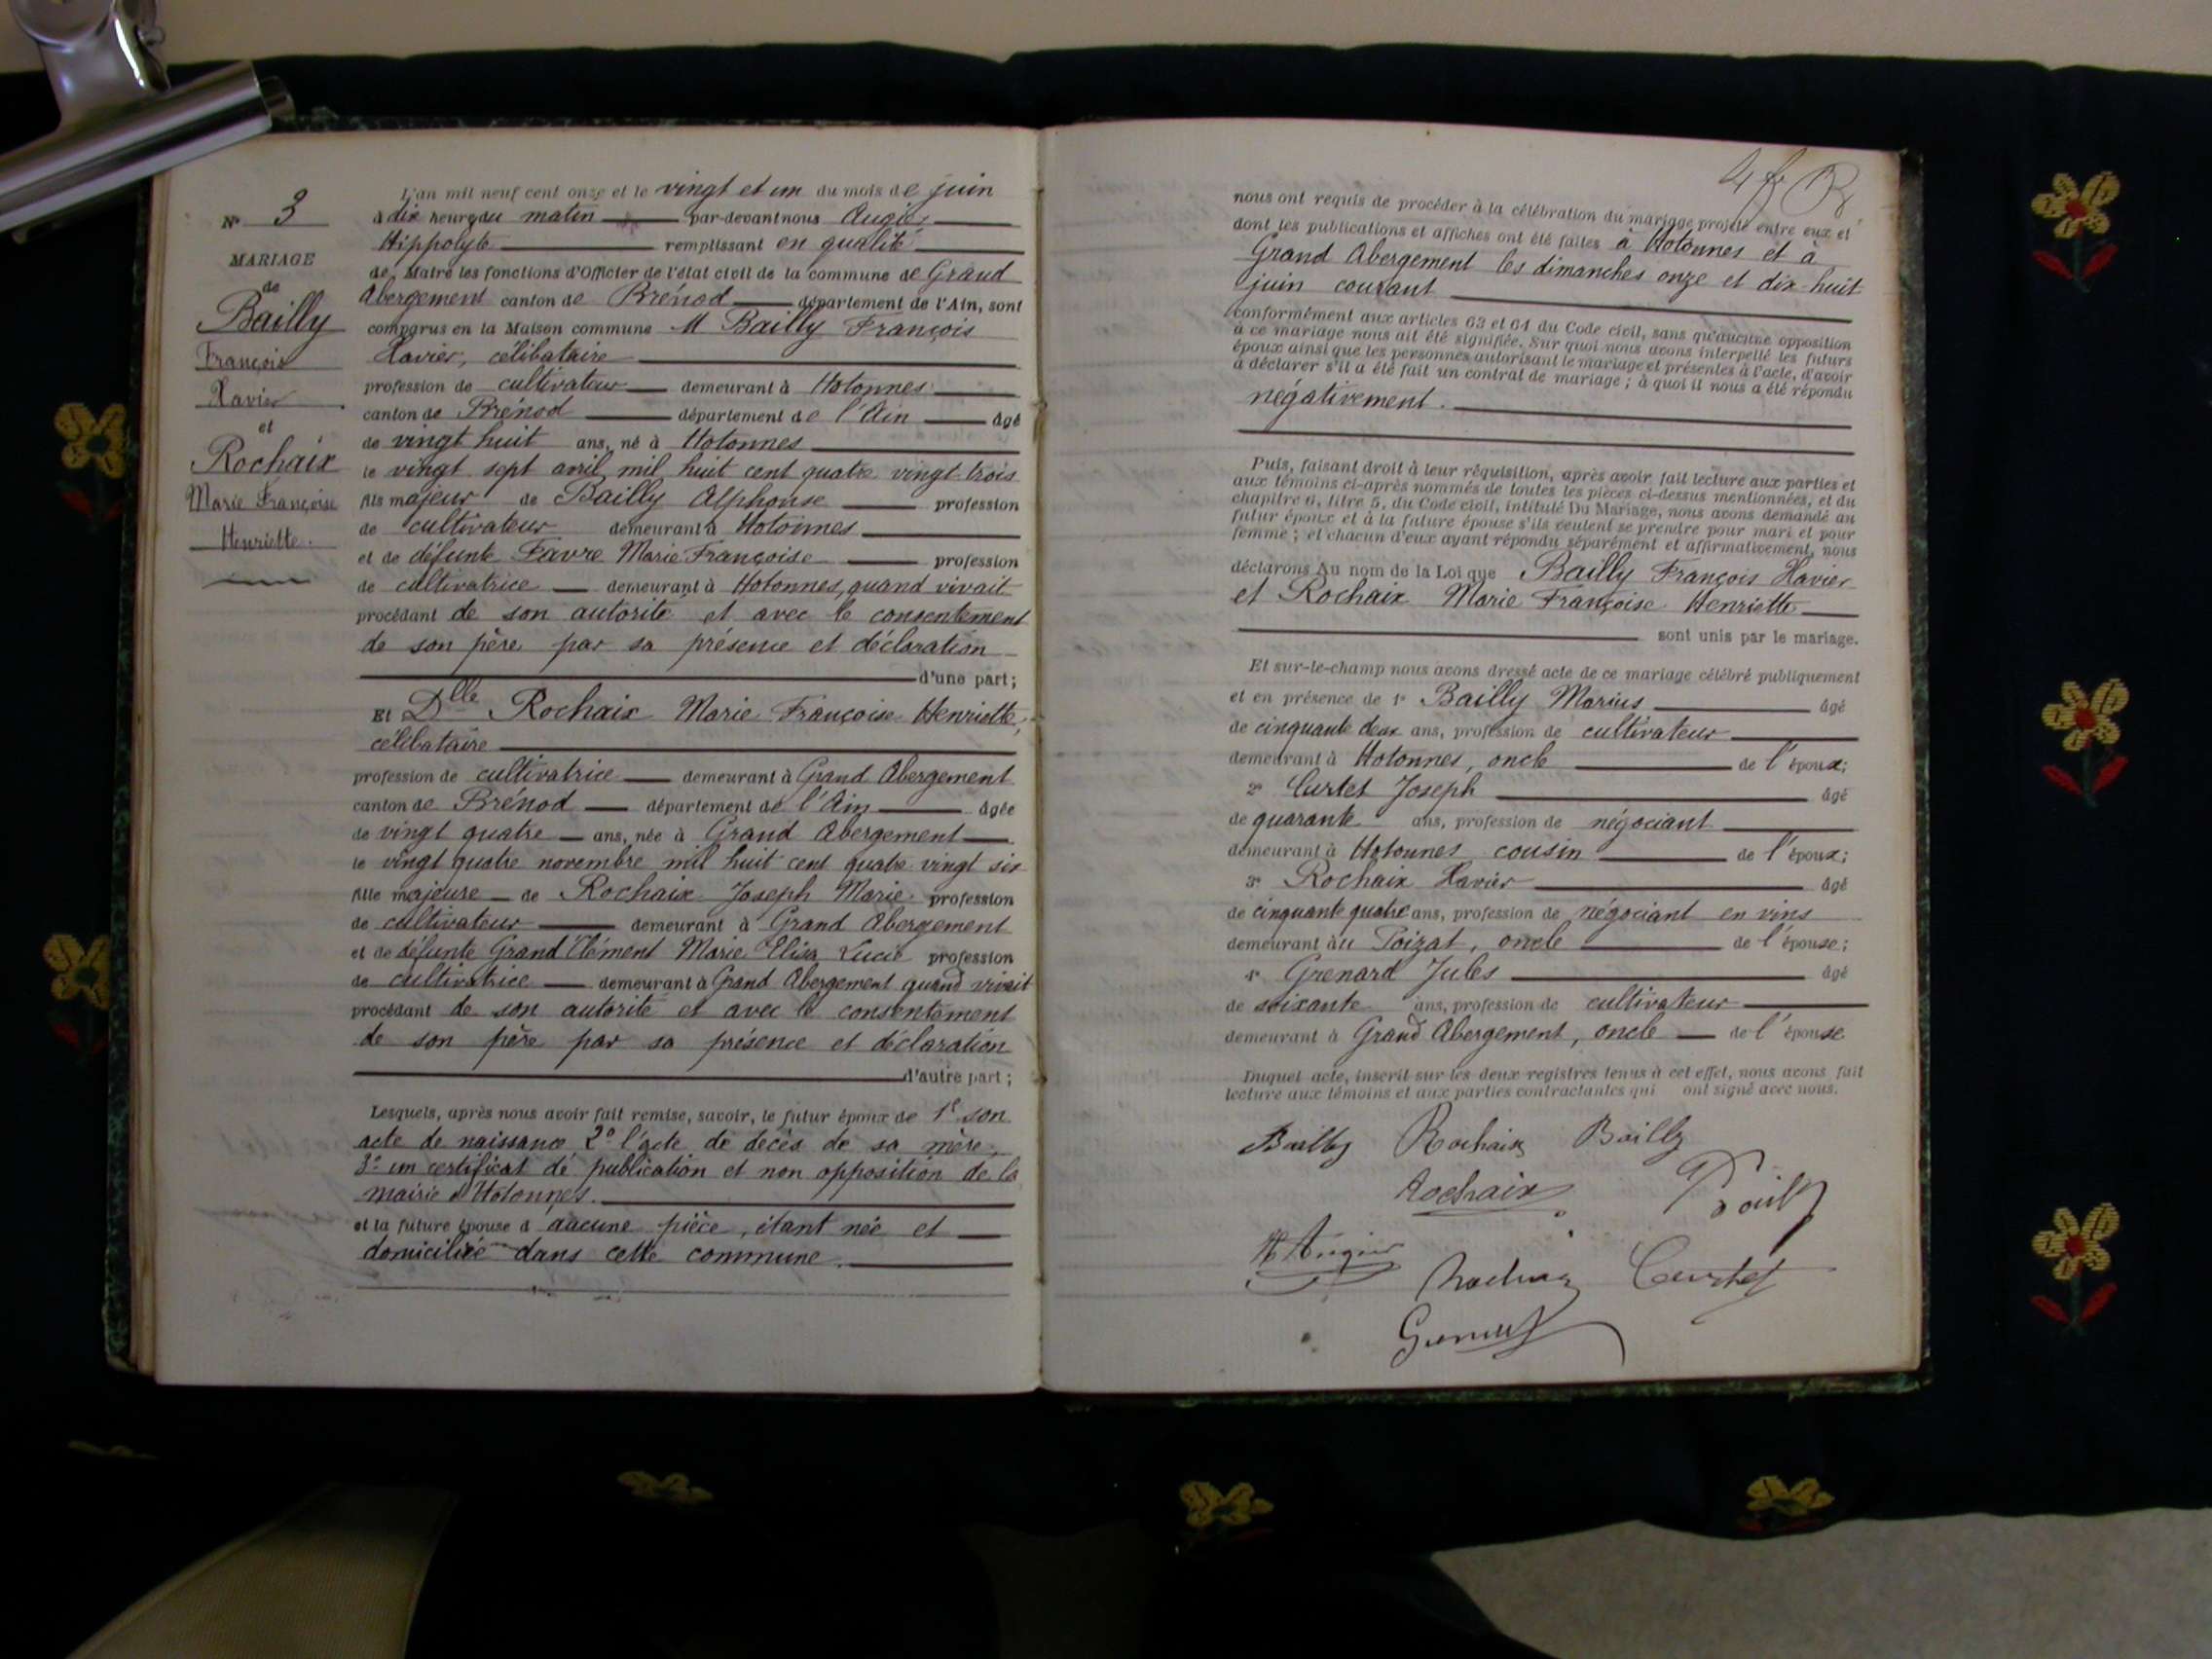 N° 3
MARIAGE
de
Bailly
François
Xavier
et
Rochaix
Marie Françoise
Henriette.
L'an mil neuf cent onze et le vingt et un du mois de juin
à dix heures du matin par-devant nous Augier
Hippolyte remplissant en qualité
de Maire les fonctions d'Officier de l'état civil de la commune de Grand
Abergement canton de Brénod département de l'Ain, sont
comparus en la Maison commune M Bailly François
Xavier, célibataire
profession de cultivateur demeurant à Hotonnes
canton de Brénod département de l'Ain âgé
de vingt huit ans, né à Hotonnes
le vingt sept avril mil huit cent quatre vingt trois
fils majeur de Bailly Alphonse profession
de cultivateur demeurant à Hotonnes
et de défunte Favre Marie Françoise profession
de cultivatrice demeurant à Hotonnes, quand vivait
procédant de son autorité et avec le consentement
de son père par sa présence et déclaration
d'une part;
Et Dlle Rochaix Marie Françoise Henriette,
célibataire
profession de cultivatrice demeurant à Grand Abergement
canton de Brénod département de l'Ain âgée
de vingt quatre ans, née à Grand Abergement
le vingt quatre novembre mil huit cent quatre vingt six
fille majeure de Rochaix Joseph Marie profession
de cultivateur demeurant à Grand Abergement
et de défunte Grand Clément Marie Elisa Lucie profession
de cultivatrice demeurant à Grand Abergement quand vivait
procédant de son autorité et avec le consentement
de son père par sa présence et déclaration
d'autre part;
Lesquels, après nous avoir fait remise, savoir, le futur époux de 1° son
acte de naissance 2° l'acte de décès de sa mère,
3° un certificat de publication et non opposition de la
mairie d'Hotonnes.
et la future épouse d aucune pièce, étant née et
domiciliée dans cette commune.
4 f R
nous ont requis de procéder à la célébration du mariage projeté entre eux et
dont les publications et affiches ont été faites à Hotonnes et à
Grand Abergement les dimanches onze et dix-huit
juin courant
conformément aux articles 63 et 64 du Code civil, sans qu'aucune opposition
à ce mariage nous ait été signifiée. Sur quoi nous avons interpellé les futurs
époux ainsi que les personnes autorisant le mariage et présentes à l'acte, d'avoir
à déclarer s'il a été fait un contrat de mariage; à quoi il nous a été répondu
négativement.
Puis, faisant droit à leur réquisition, après avoir fait lecture aux parties et
aux témoins ci-après nommés de toutes les pièces ci-dessus mentionnées, et du
chapitre 6, titre 5, du Code civil, intitulé Du Mariage, nous avons demandé au
futur époux et à la future épouse s'ils veulent se prendre pour mari et pour
femme; et chacun d'eux ayant répondu séparément et affirmativement, nous
déclarons Au nom de la Loi que Bailly François Xavier
et Rochaix Marie Françoise Henriette
sont unis par le mariage.
Et sur-le-champ nous avons dressé acte de ce mariage célébré publiquement
et en présence de 1° Bailly Marius âgé
de cinquante deux ans, profession de cultivateur
demeurant à Hotonnes, oncle de l'époux;
2° Curtet Joseph âgé
de quarante ans, profession de négociant
demeurant à Hotonnes cousin de l'époux;
3° Rochaix Xavier âgé
de cinquante quatre ans, profession de négociant en vins
demeurant au Poizat, oncle de l'épouse;
4° Grenard Jules âgé
de soixante ans, profession de cultivateur
demeurant à Grand Abergement, oncle de l'épouse
Duquel acte, inscrit sur les deux registres tenus à cet effet, nous avons fait
lecture aux témoins et aux parties contractantes qui ont signé avec nous.
Bailly Rochaix Bailly
Rochaix Bailly
H Augier Rochaix Curtet
Grenard